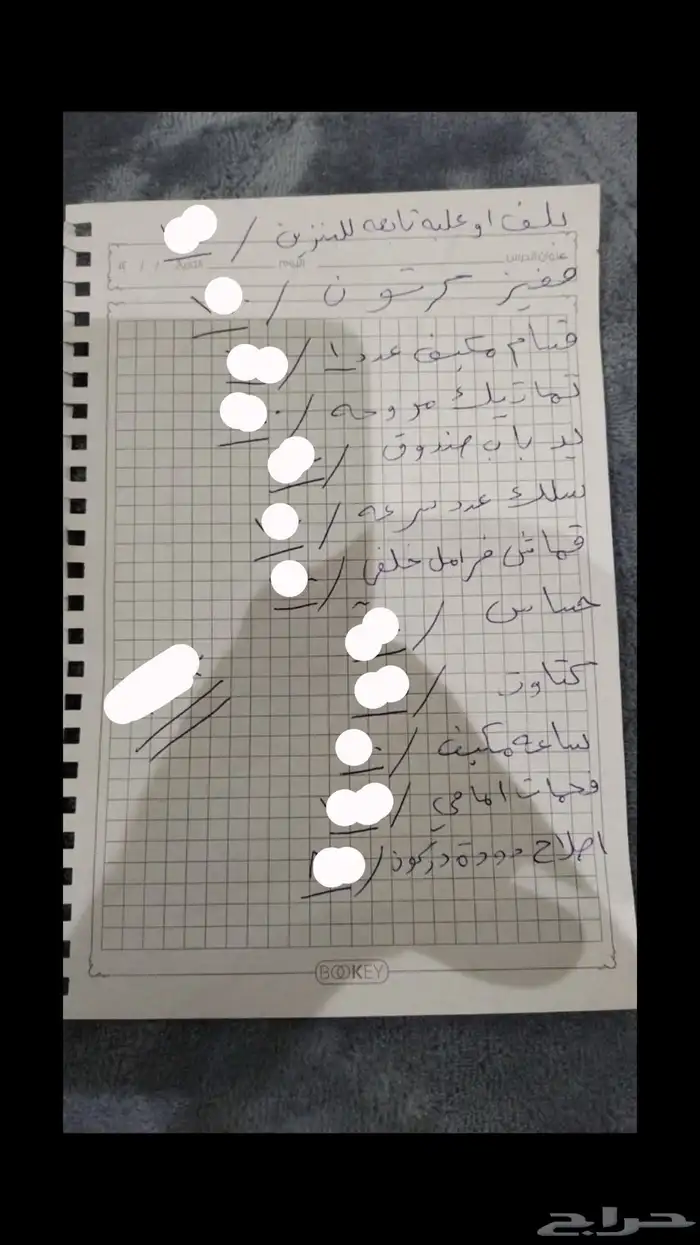 بلف او علبه تابعه للبنزين /
عنوان الدرس اليوم التاريخ / / م
مفيز كرتون /
قسام مكيف عدد ١ /
تماتيك مروحه /
يد باب صندوق /
سلك عدد سرعه /
قماش فرامل خلفي /
حساس /
كتاوت /
ساعه مكيف /
فحمات امامي /
اصلاح دودة دركون /
BOOKEY
حراج